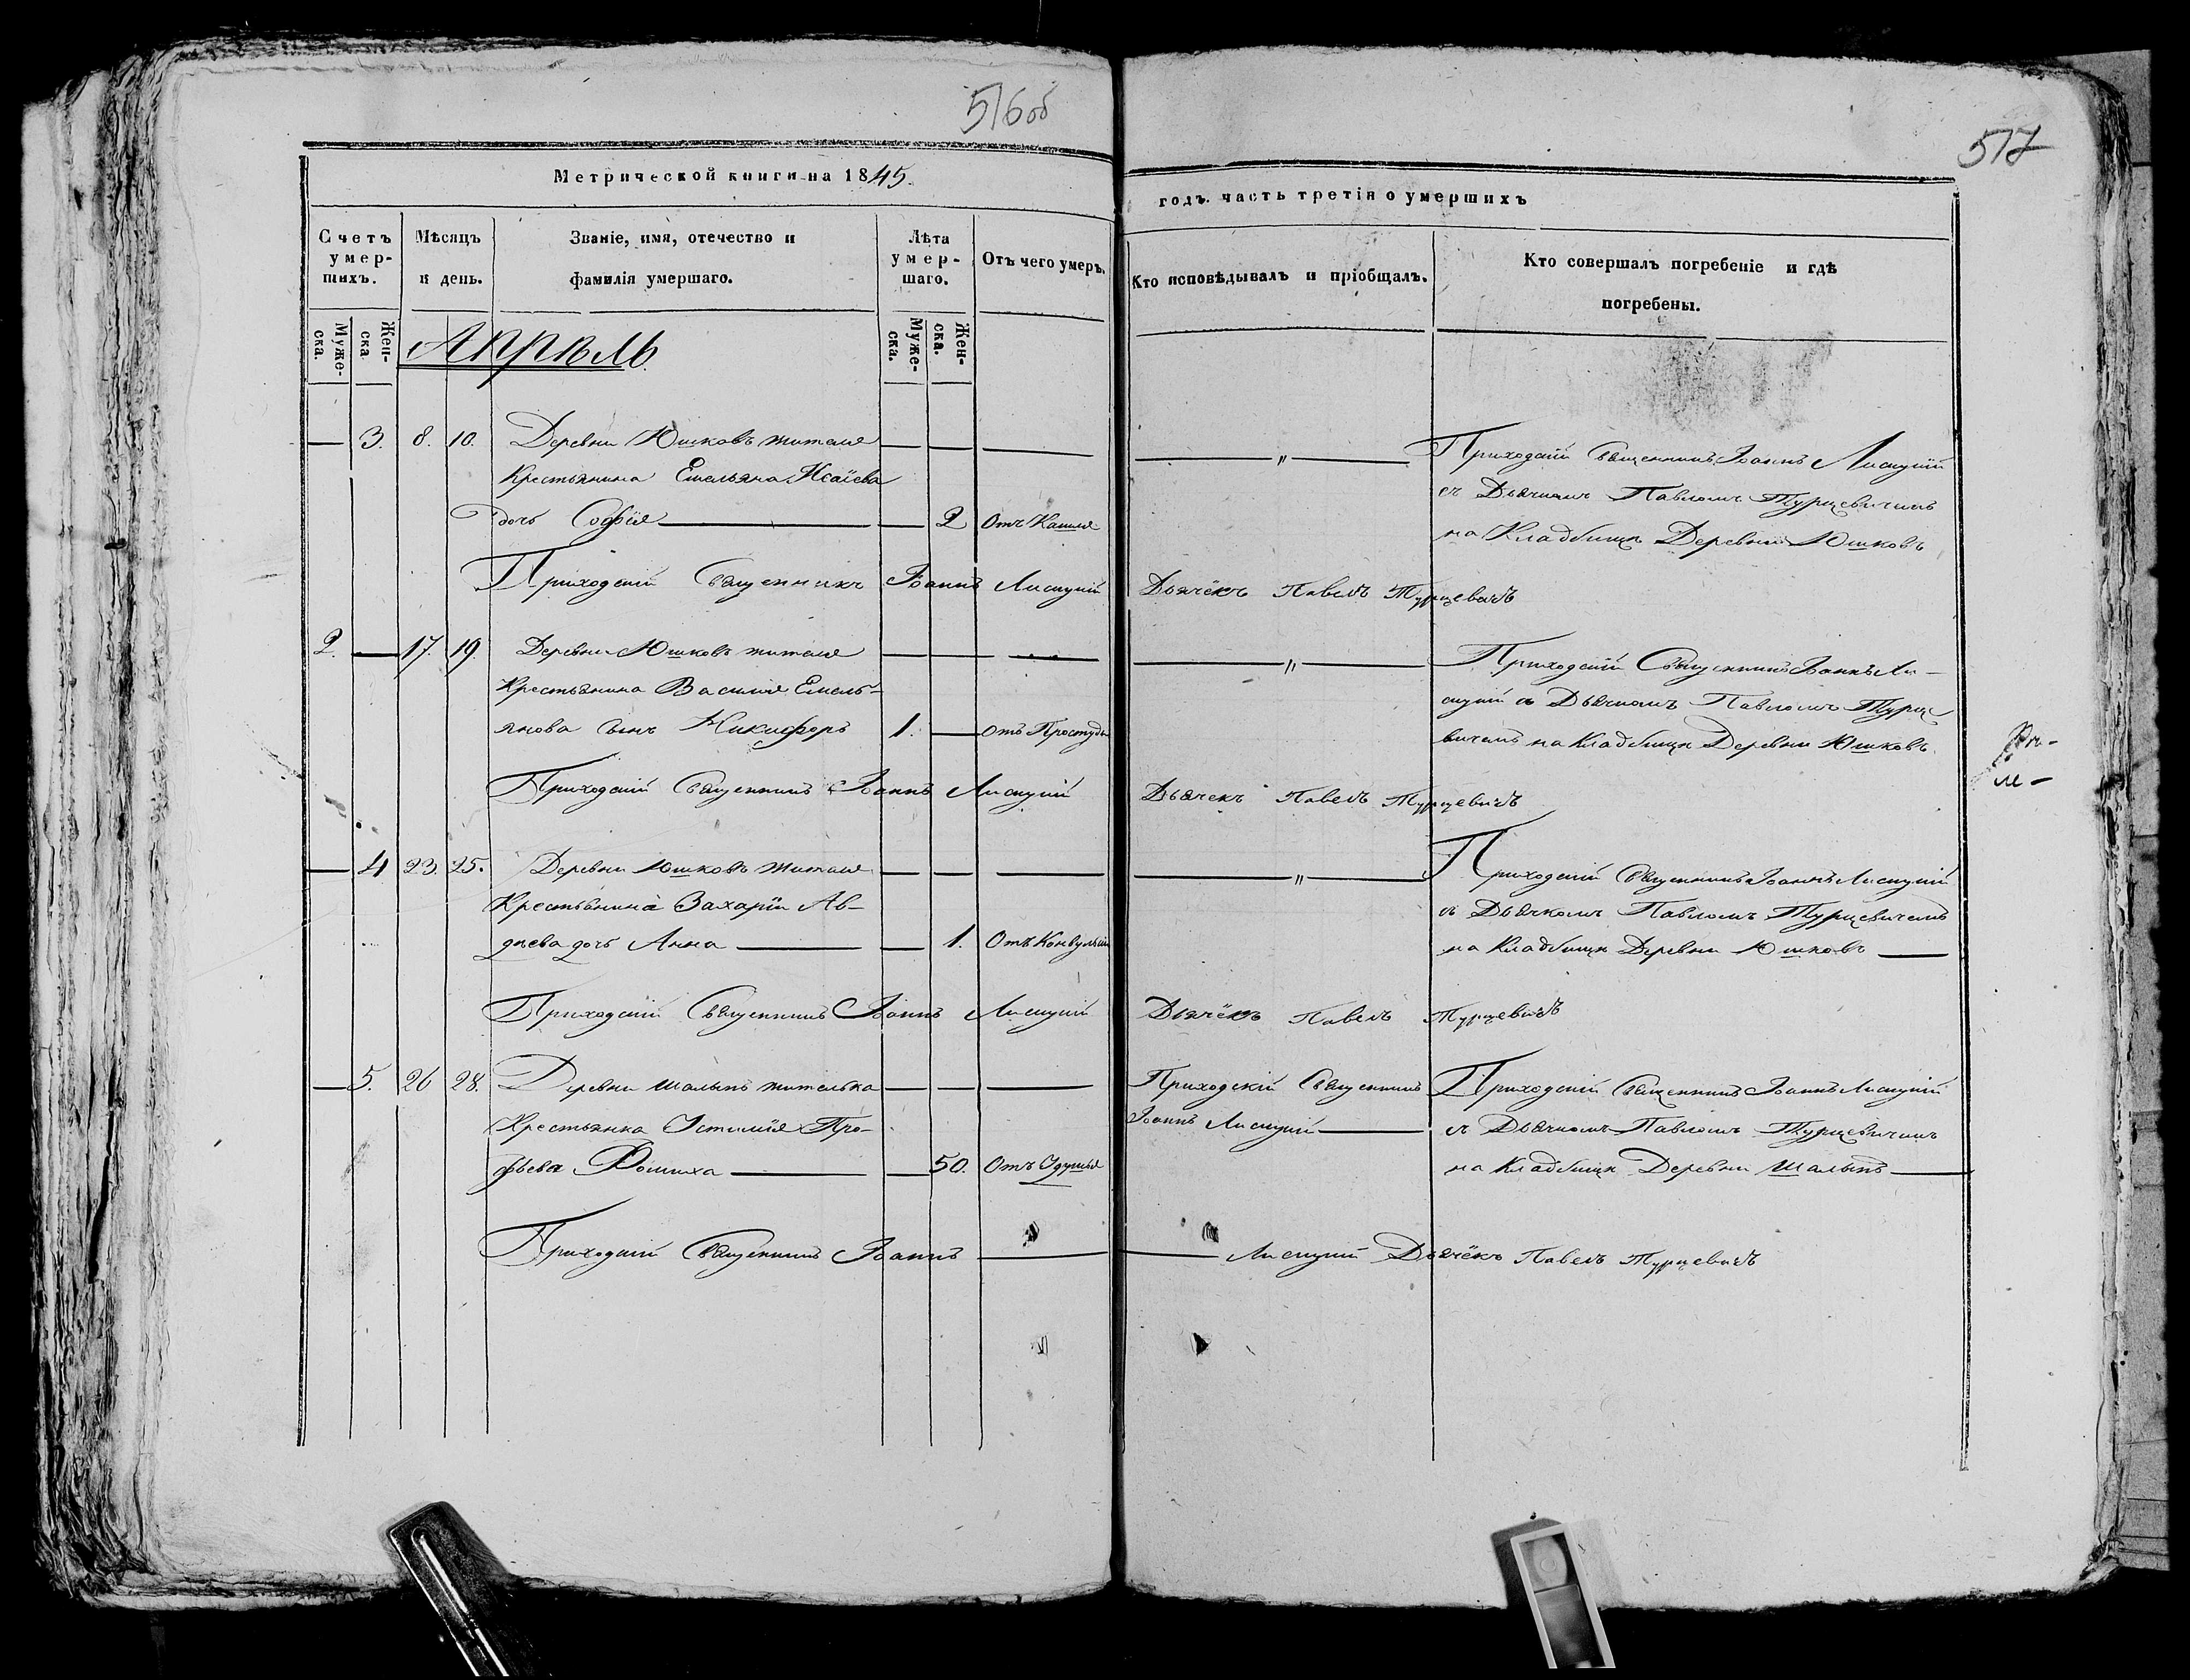 516об
517
Метрической книги на 1845.
годъ. часть третія о умершихъ
Счетъ умер-шихъ.
Мѣсяцъ и день.
Званіе, имя, отечество и фамилія умершаго.
Лѣта умер-шаго.
Отъ чего умеръ.
Кто исповѣдывалъ и пріобщалъ.
Кто совершалъ погребеніе и гдѣ погребены.
Муже-ска.
Жен-ска
Муже-ска.
Жен-ска.
Апрѣль
— 3. 8. 10. Деревни Юшковъ жителя
Крестьянина Емельяна Исаіева
дочь Софія — 2 Отъ Кашля
"
Приходскій Священникъ Іоаннъ Лисицкій
съ Дьячкомъ Павломъ Турцевичемъ
на Кладбищѣ Деревни Юшковъ
Приходскій Священникъ Іоаннъ Лисицкій Дьячёкъ Павелъ Турцевичъ
2. — 17. 19. Деревни Юшковъ жителя
Крестьянина Василія Емель-
янова сынъ Никифоръ 1. — Отъ Простуды
"
Приходскій Священникъ Іоаннъ Ли-
сицкій съ Дьячкомъ Павломъ Турце
вичемъ на Кладбищѣ Деревни Юшковъ.
Приходскій Священникъ Іоаннъ Лисицкій Дьячекъ Павелъ Турцевичъ
— 4 23. 25. Деревни Юшковъ жителя
Крестьянина Захарія Ав-
дѣева дочь Анна — 1. Отъ Конвульсіи
"
Приходскій Священникъ Іоаннъ Лисицкій
съ Дьячкомъ Павломъ Турцевичемъ
на Кладбищѣ Деревни Юшковъ —
Приходскій Священникъ Іоаннъ Лисицкій Дьячёкъ Павелъ Турцевичъ
— 5. 26 28. Деревни Шалыпъ жителька
Крестьянка Устимія Про-
фьева — 50. Отъ Одушья
Приходскій Священникъ
Іоаннъ Лисицкій —
Приходскій Священникъ Іоаннъ Лисицкій
съ Дьячкомъ Павломъ Турцевичемъ
на Кладбищѣ Деревни Шалыпъ —
Приходскій Священникъ Іоаннъ — Лисицкій Дьячёкъ Павелъ Турцевичъ